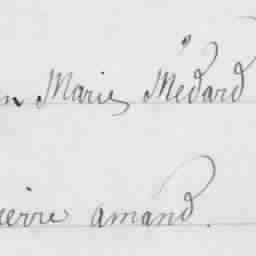 n Marie Médard
ierre amand.